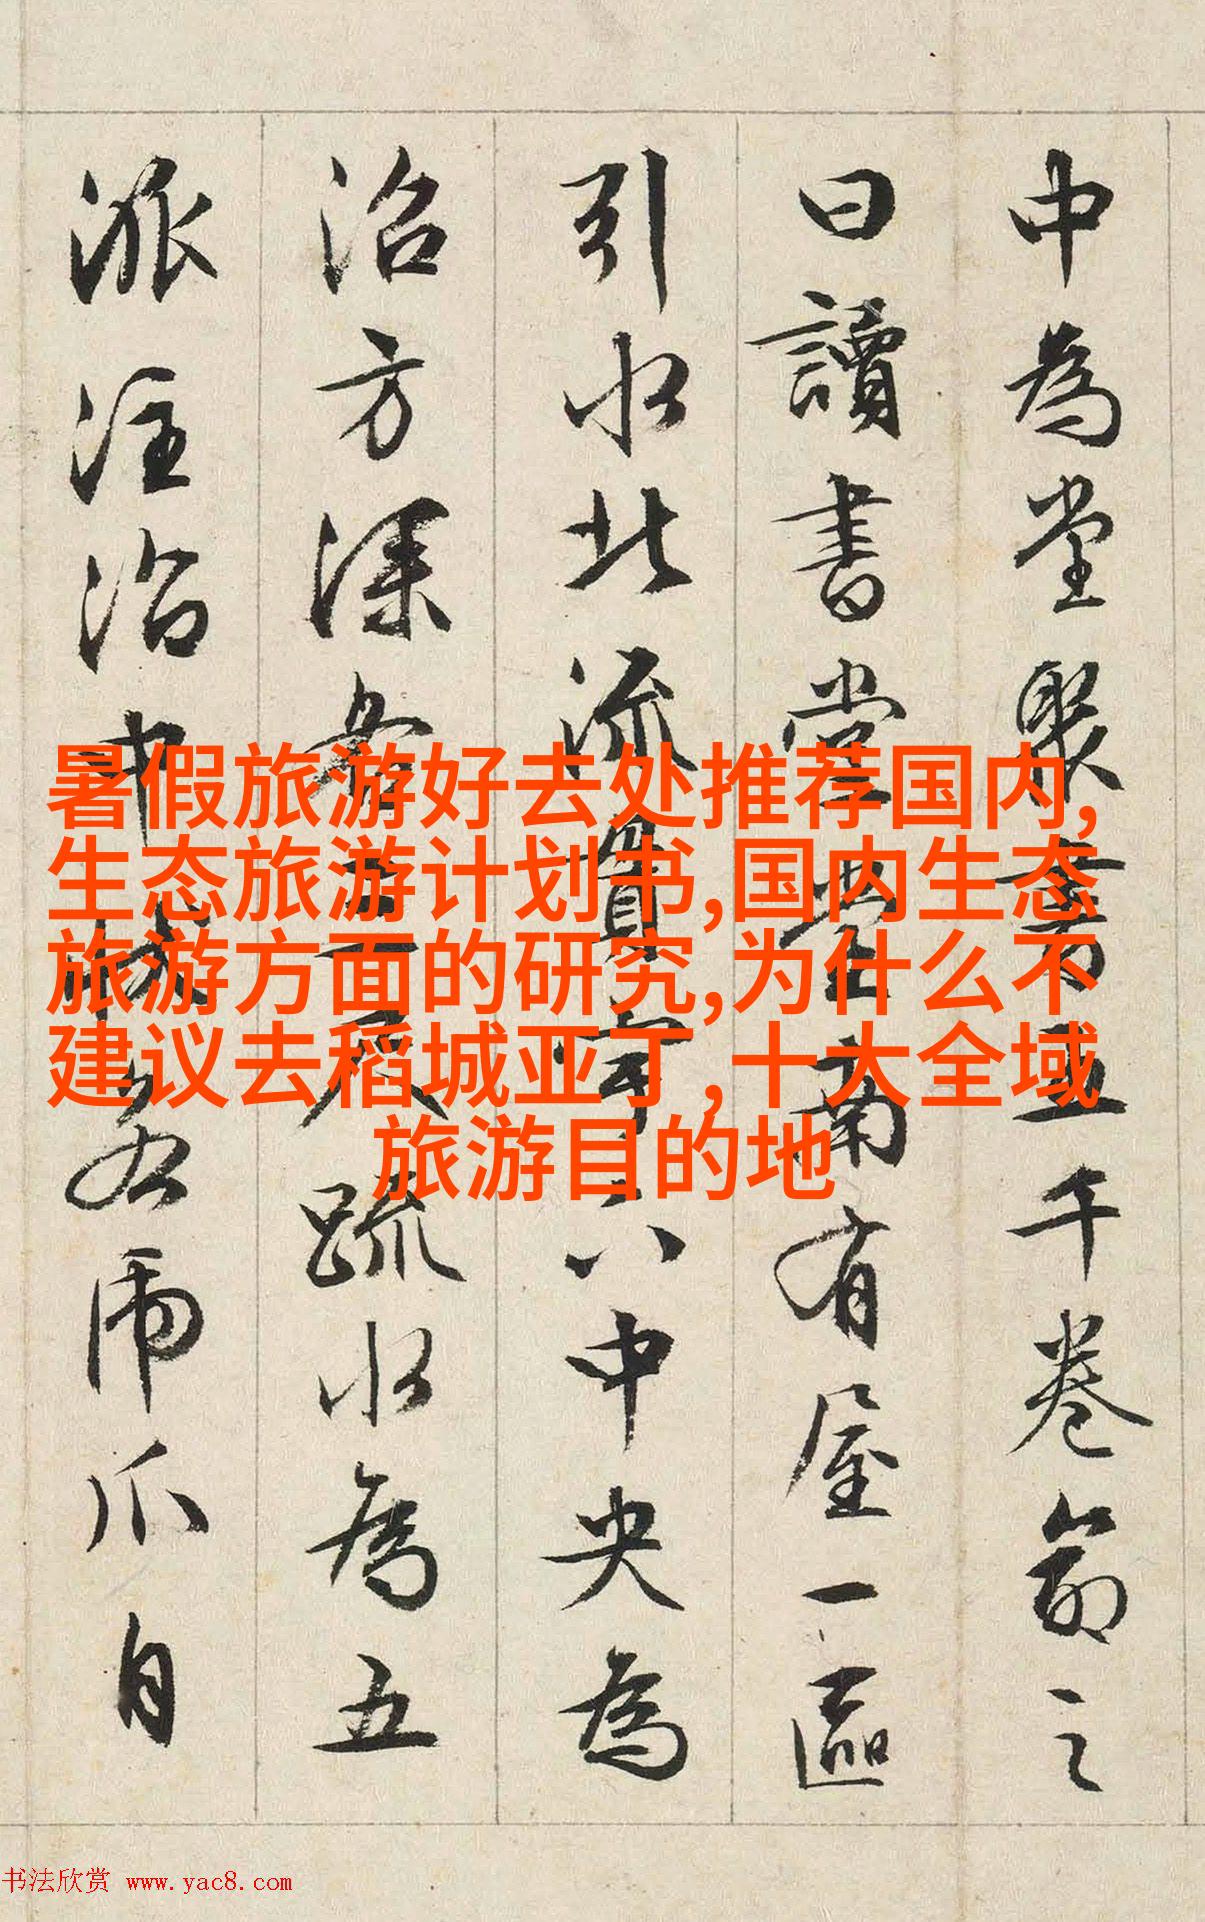 中為堂聚書五千卷命之
曰讀書堂堂南有屋一區
引水北流貫宇下中央為
沼方深各三尺疏水為五
派注沼中狀若虎爪自
暑假旅游好去处推荐国内,
生态旅游计划书,国内生态
旅游方面的研究,为什么不
建议去稻城亚丁,十大全域
旅游目的地
书法欣赏 www.yac8.com